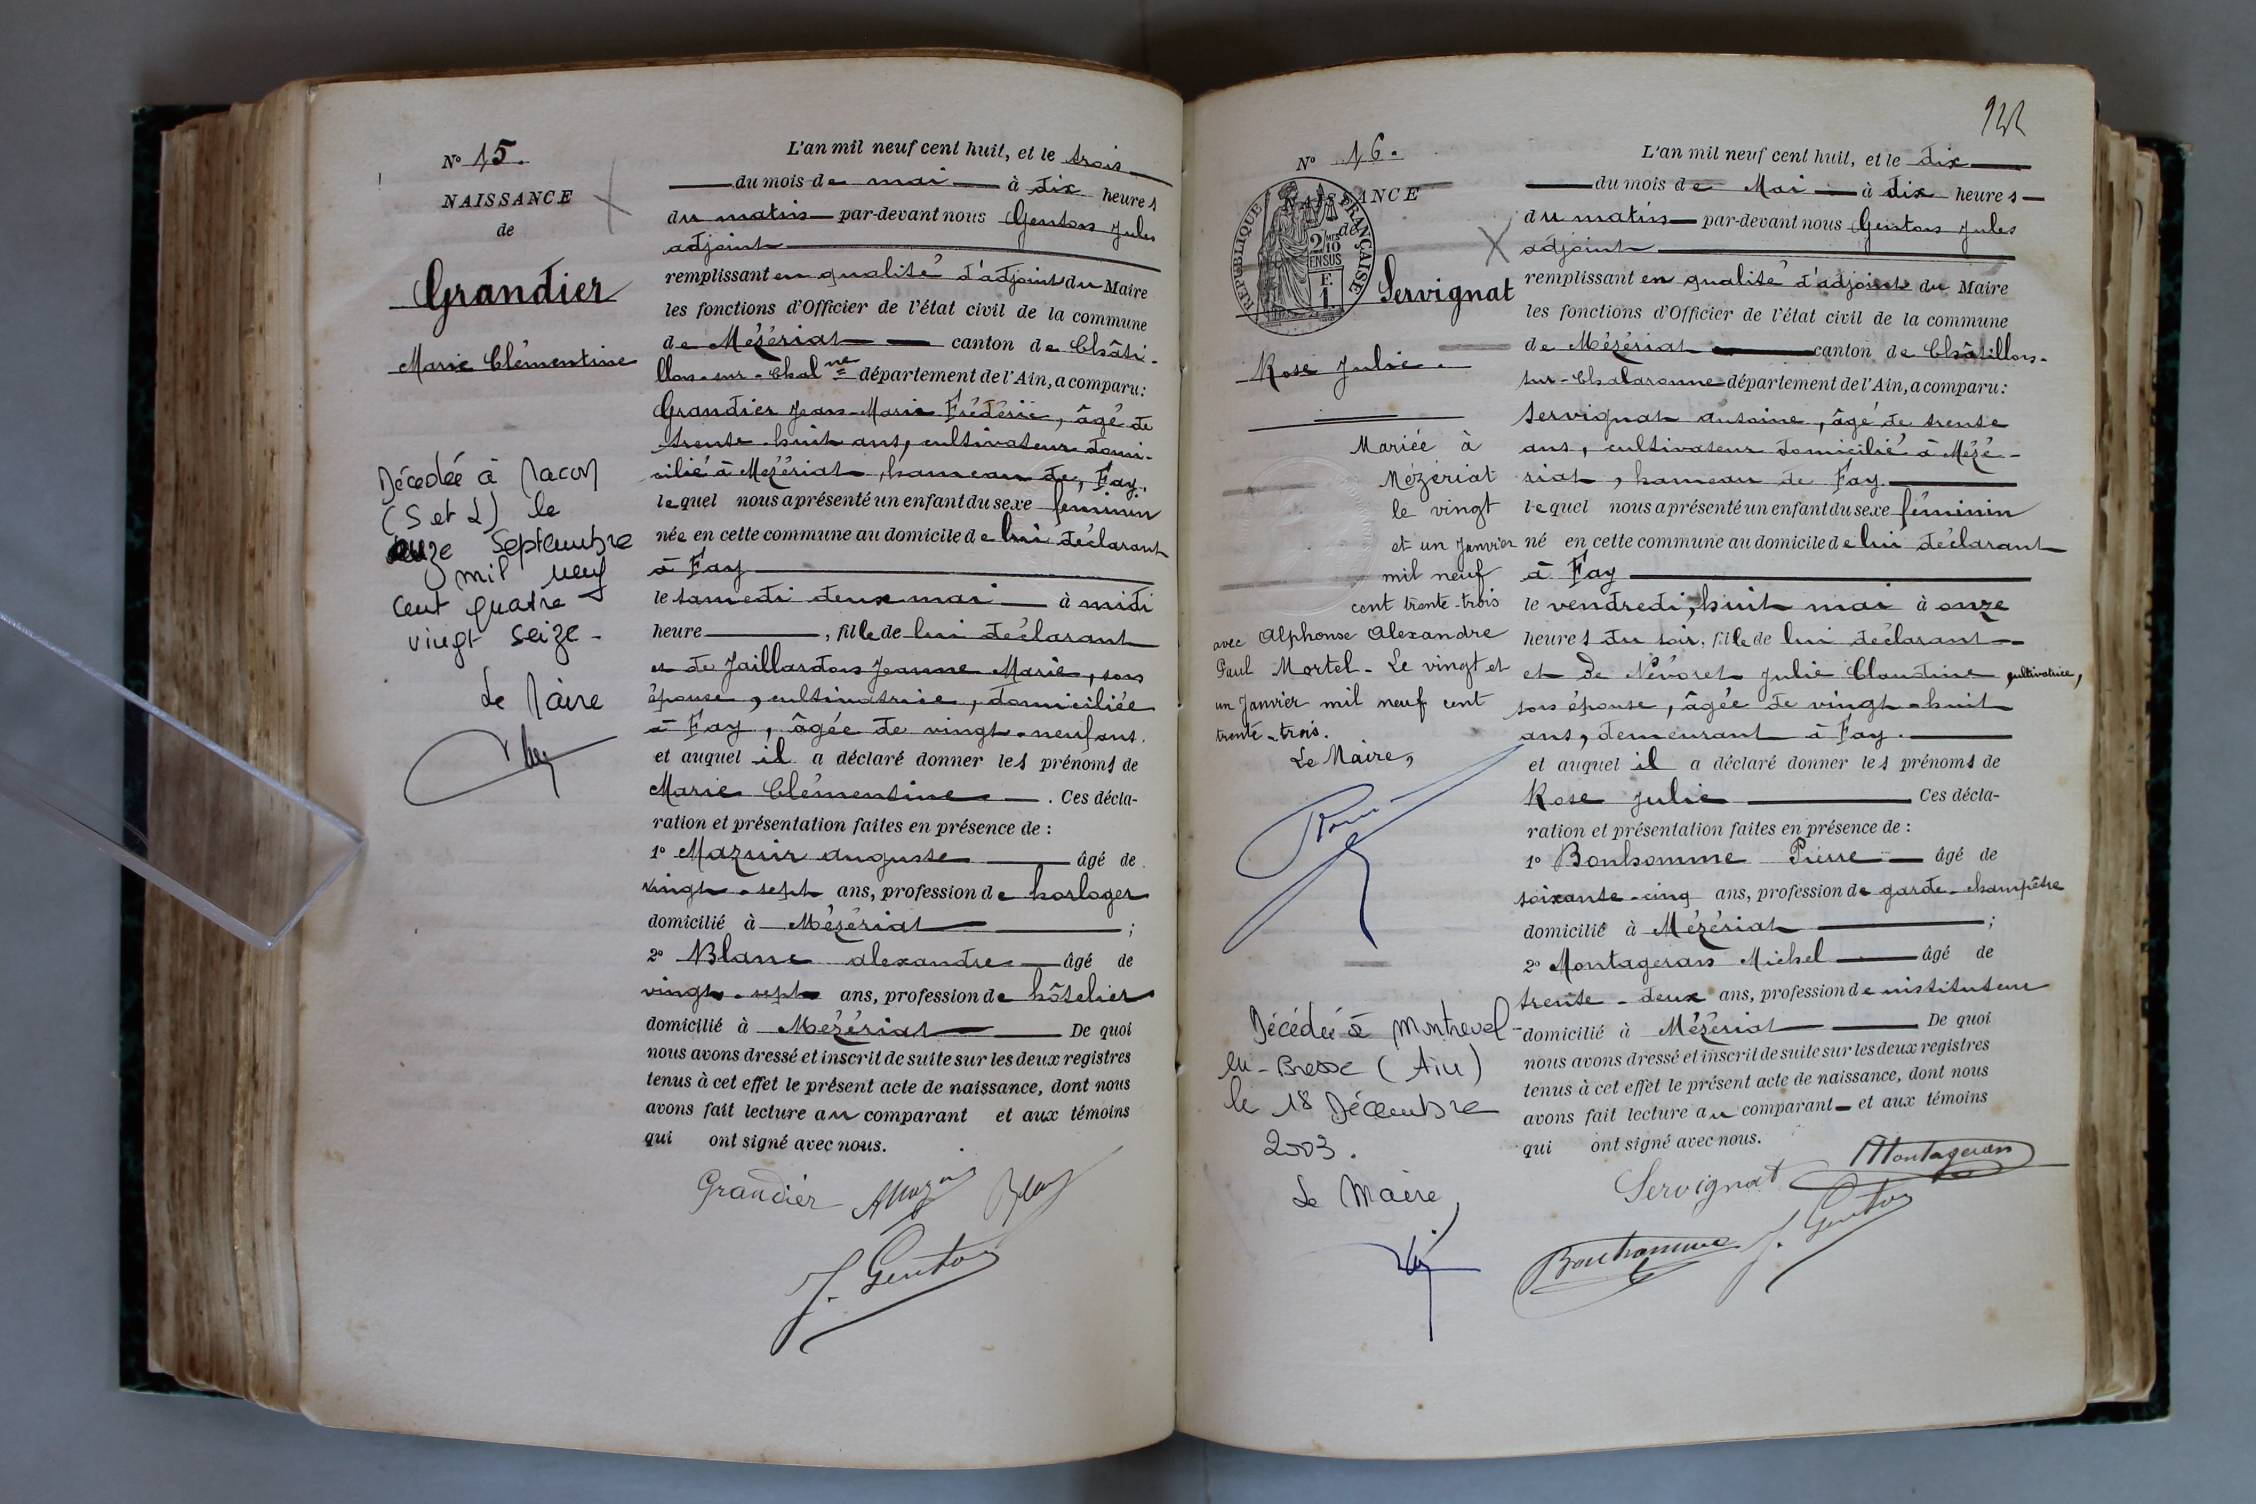 N° 15.
NAISSANCE
de
Grandier
Marie Clémentine
Décédée à Macon
(S et L) le
onze Septembre
mil neuf
cent quatre
vingt seize -
Le Maire
L'an mil neuf cent huit, et le trois
du mois de mai à dix heures
du matin par-devant nous Genton Jules
adjoint
remplissant en qualité d'adjoint du Maire
les fonctions d'Officier de l'état civil de la commune
de Mézériat canton de Châti-
llon-sur-Chalne département de l'Ain, a comparu:
Grandier Jean-Marie Frédéric, âgé de
trente-huit ans, cultivateur domi-
cilié à Mézériat, hameau de, Fay,
lequel nous a présenté un enfant du sexe féminin
née en cette commune au domicile de lui déclarant
à Fay
le samedi deux mai à midi
heure , fille de lui déclarant
et de Jaillardon Jeanne Marie, son
épouse, cultivatrice, domiciliée
à Fay, âgée de vingt-neuf ans.
et auquel il a déclaré donner les prénoms de
Marie Clémentine . Ces décla-
ration et présentation faites en présence de :
1° Mazuir auguste âgé de
vingt-sept ans, profession de horloger
domicilié à Mézériat ;
2° Blanc alexandre âgé de
vingt-sept ans, profession de hôtelier
domicilié à Mézériat De quoi
nous avons dressé et inscrit de suite sur les deux registres
tenus à cet effet le présent acte de naissance, dont nous
avons fait lecture au comparant et aux témoins
qui ont signé avec nous.
Grandier
J. Genton
N° 16.
NAISSANCE
de
RÉPUBLIQUE FRANÇAISE
2/10
EN SUS
F.
1.
Servignat
Rose Julie.
Mariée à
Mézériat
le vingt
et un Janvier
mil neuf
cent trente-trois
avec Alphonse Alexandre
Paul Mortel - Le vingt et
un Janvier mil neuf cent
trente-trois.
Le Maire,
Décédée à Montrevel-
en-Bresse (Ain)
le 18 Décembre
2003.
Le Maire,
L'an mil neuf cent huit, et le dix
du mois de Mai à dix heures
du matin par-devant nous Genton Jules
adjoint
remplissant en qualité d'adjoint du Maire
les fonctions d'Officier de l'état civil de la commune
de Mézériat canton de Châtillon-
sur-Chalaronne département de l'Ain, a comparu:
Servignat antoine, âgé de trente
ans, cultivateur domicilié à Mézé-
riat, hameau de Fay.
lequel nous a présenté un enfant du sexe féminin
né en cette commune au domicile de lui déclarant
à Fay
le vendredi, huit mai à onze
heures du soir, fille de lui déclarant
et de Névoret Julie Claudine, cultivatrice,
son épouse, âgée de vingt-huit
ans, demeurant à Fay.
et auquel il a déclaré donner les prénoms de
Rose Julie Ces décla-
ration et présentation faites en présence de :
1° Bonhomme Pierre âgé de
soixante-cinq ans, profession de garde-champêtre
domicilié à Mézériat ;
2° Montageran Michel âgé de
trente-deux ans, profession de instituteur
domicilié à Mézériat De quoi
nous avons dressé et inscrit de suite sur les deux registres
tenus à cet effet le présent acte de naissance, dont nous
avons fait lecture au comparant et aux témoins
qui ont signé avec nous.
Montageran
Servignat
Bonhomme J. Genton